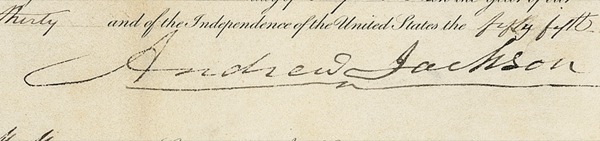 thirty and of the Independence of the United States the fifty fifth.
Andrew Jackson